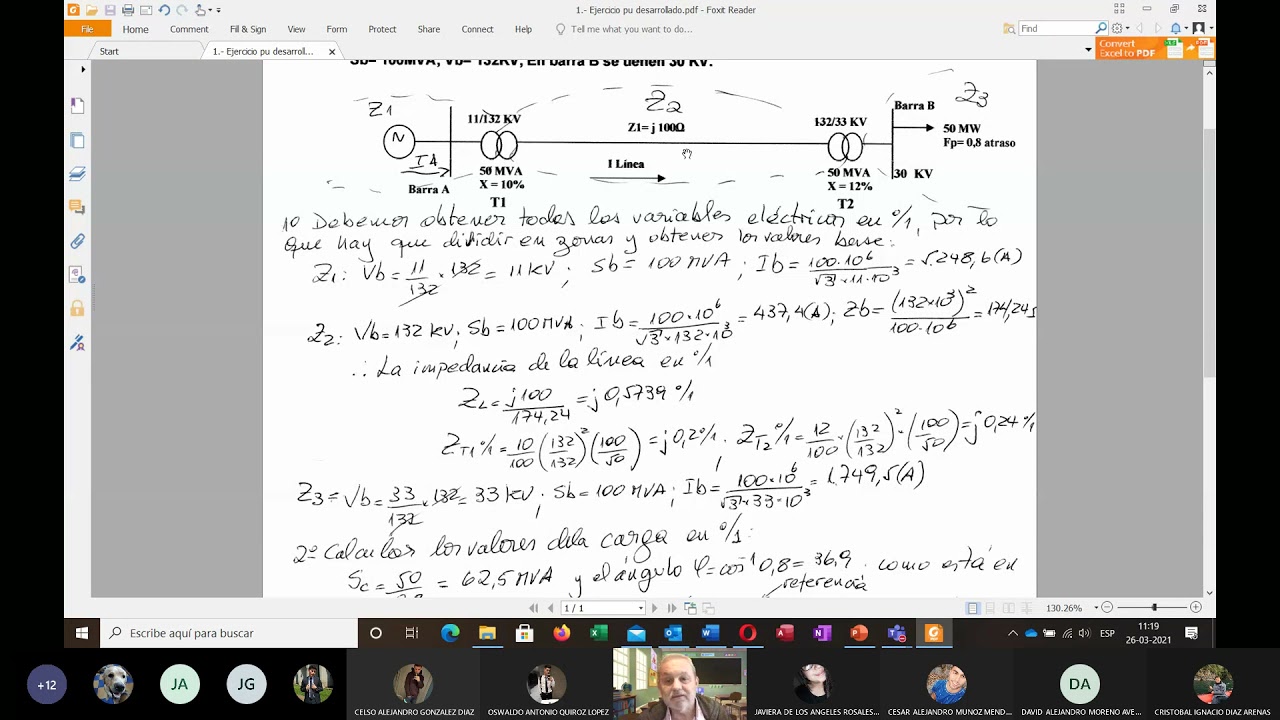 1.- Ejercicio pu desarrollado.pdf - Foxit Reader
File Home Comment Fill & Sign View Form Protect Share Connect Help Tell me what you want to do... Find
Start 1.- Ejercicio pu desarroll...
Convert
Excel to PDF
Sb= 100MVA, Vb= 132KV, En barra B se tienen 30 KV.
Z1 Z2 Z3
11/132 KV Z1= j 100Ω 132/33 KV Barra B
N 50 MW
Fp= 0,8 atraso
IA I Línea
Barra A 50 MVA 50 MVA 30 KV
X = 10% X = 12%
T1 T2
1º Debemos obtener todas las variables eléctricas en º/1, por lo
que hay que dividir en zonas y obtener los valores base:
Z1: Vb= 11/132 × 132 = 11 kV; Sb= 100 MVA; Ib= 100·10⁶/√3×11·10³ = 5.248,6(A)
Z2: Vb= 132 kV; Sb= 100MVA; Ib= 100×10⁶/√3×132×10³ = 437,4(A); Zb= (132×10³)²/100·10⁶ = 174,24
∴ La impedancia de la línea en º/1
ZL= j100/174,24 = j0,5739 º/1
ZT1 º/1= 10/100 (132/132)² (100/50) = j0,2 º/1, ZT2 º/1= 12/100 × (132/132)² · (100/50) = j0,24 º/1
Z3 = Vb= 33/132 × 132 = 33 kV; Sb= 100 MVA; Ib= 100×10⁶/√3×33×10³ = 1.749,5(A)
2º Calculas los valores de la carga en º/1:
Sc= 50/ = 62,5 MVA y el ángulo φ=cos⁻¹0,8= 36,9. como está en
referencia
1 / 1 130.26%
Escribe aquí para buscar
ESP 11:19
26-03-2021
+12 JA JG DA
CELSO ALEJANDRO GONZALEZ DIAZ
OSWALDO ANTONIO QUIROZ LOPEZ
JAVIERA DE LOS ANGELES ROSALES...
CESAR ALEJANDRO MUNOZ MEND...
DAVID ALEJANDRO MORENO AVE...
CRISTOBAL IGNACIO DIAZ ARENAS